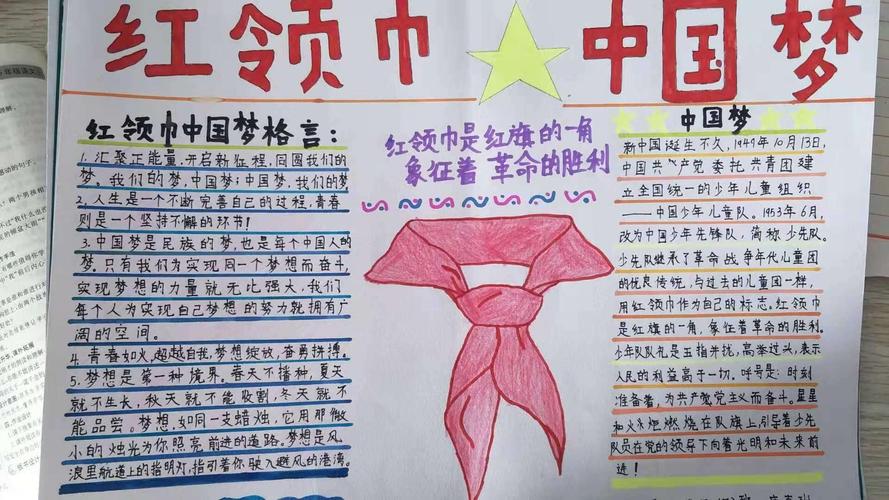 红领巾 中国梦
红领巾中国梦格言：
1. 汇聚正能量，开启新征程，同圆我们的
梦。我们的梦，中国梦；中国梦，我们的梦
2. 人生是一个不断完善自己的过程，青春
则是一个坚持不懈的环节！
3. 中国梦是民族的梦，也是每个中国人的
梦。只有我们为实现同一个梦想而奋斗，
实现梦想的力量就无比强大，我们
每个人为实现自己梦想的努力就拥有广
阔的空间。
4. 青春如火，超越自我，梦想绽放，奋勇拼搏。
5. 梦想是第一种境界。春天不播种，夏天
就不生长，秋天就不能收割，冬天就不
能品尝。梦想，如同一支蜡烛，它用那微
小的烛光为你照亮前进的道路。梦想是风
浪里航道上的指明灯，指引着你驶入避风的港湾。
红领巾是红旗的一角
象征着革命的胜利
中国梦
新中国诞生不久，1949年10月13日，
中国共产党委托共青团建
立全国统一的少年儿童组织
——中国少年儿童队。1953年6月，
改为中国少年先锋队，简称少先队。
少先队继承了革命战争年代儿童团
的优良传统，与过去的儿童团一样，
用红领巾作为自己的标志。红领巾
是红旗的一角，象征着革命的胜利。
少年队队礼是五指并拢，高举过头，表示
人民的利益高于一切。呼号是：时刻
准备着，为共产党主义而奋斗。星星
和火炬燃烧在队旗上，引导着少先
队员在党的领导下向着光明和未来前
进！